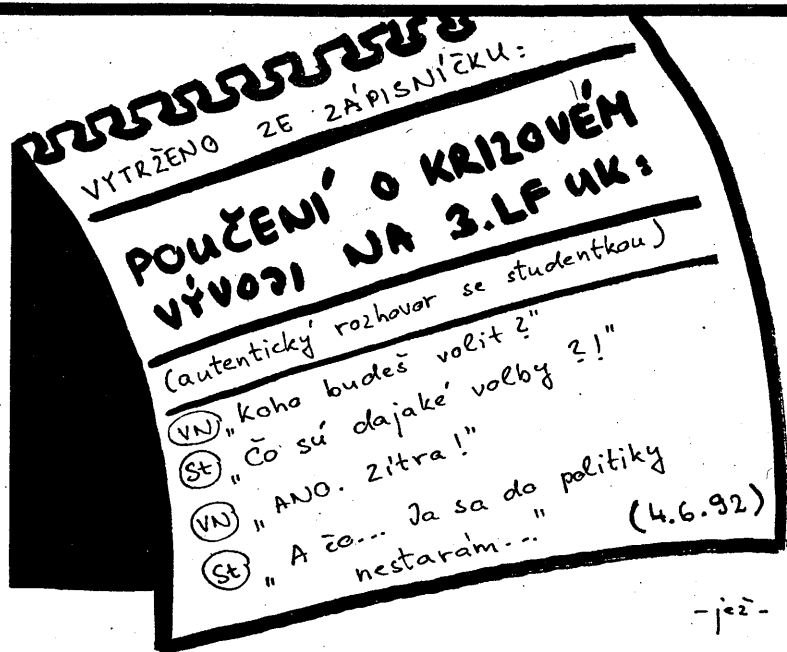 VYTRŽENO ZE ZÁPISNÍČKU:
POUČENÍ O KRIZOVÉM
VÝVOJI NA 3.LF UK:
(autentický rozhovor se studentkou)
VN „Koho budeš volit?"
St „Čo sú dajaké volby?!"
VN „ANO. Zítra!"
St „A čo... Ja sa do politiky
nestarám..."
(4.6.92)
-jež-